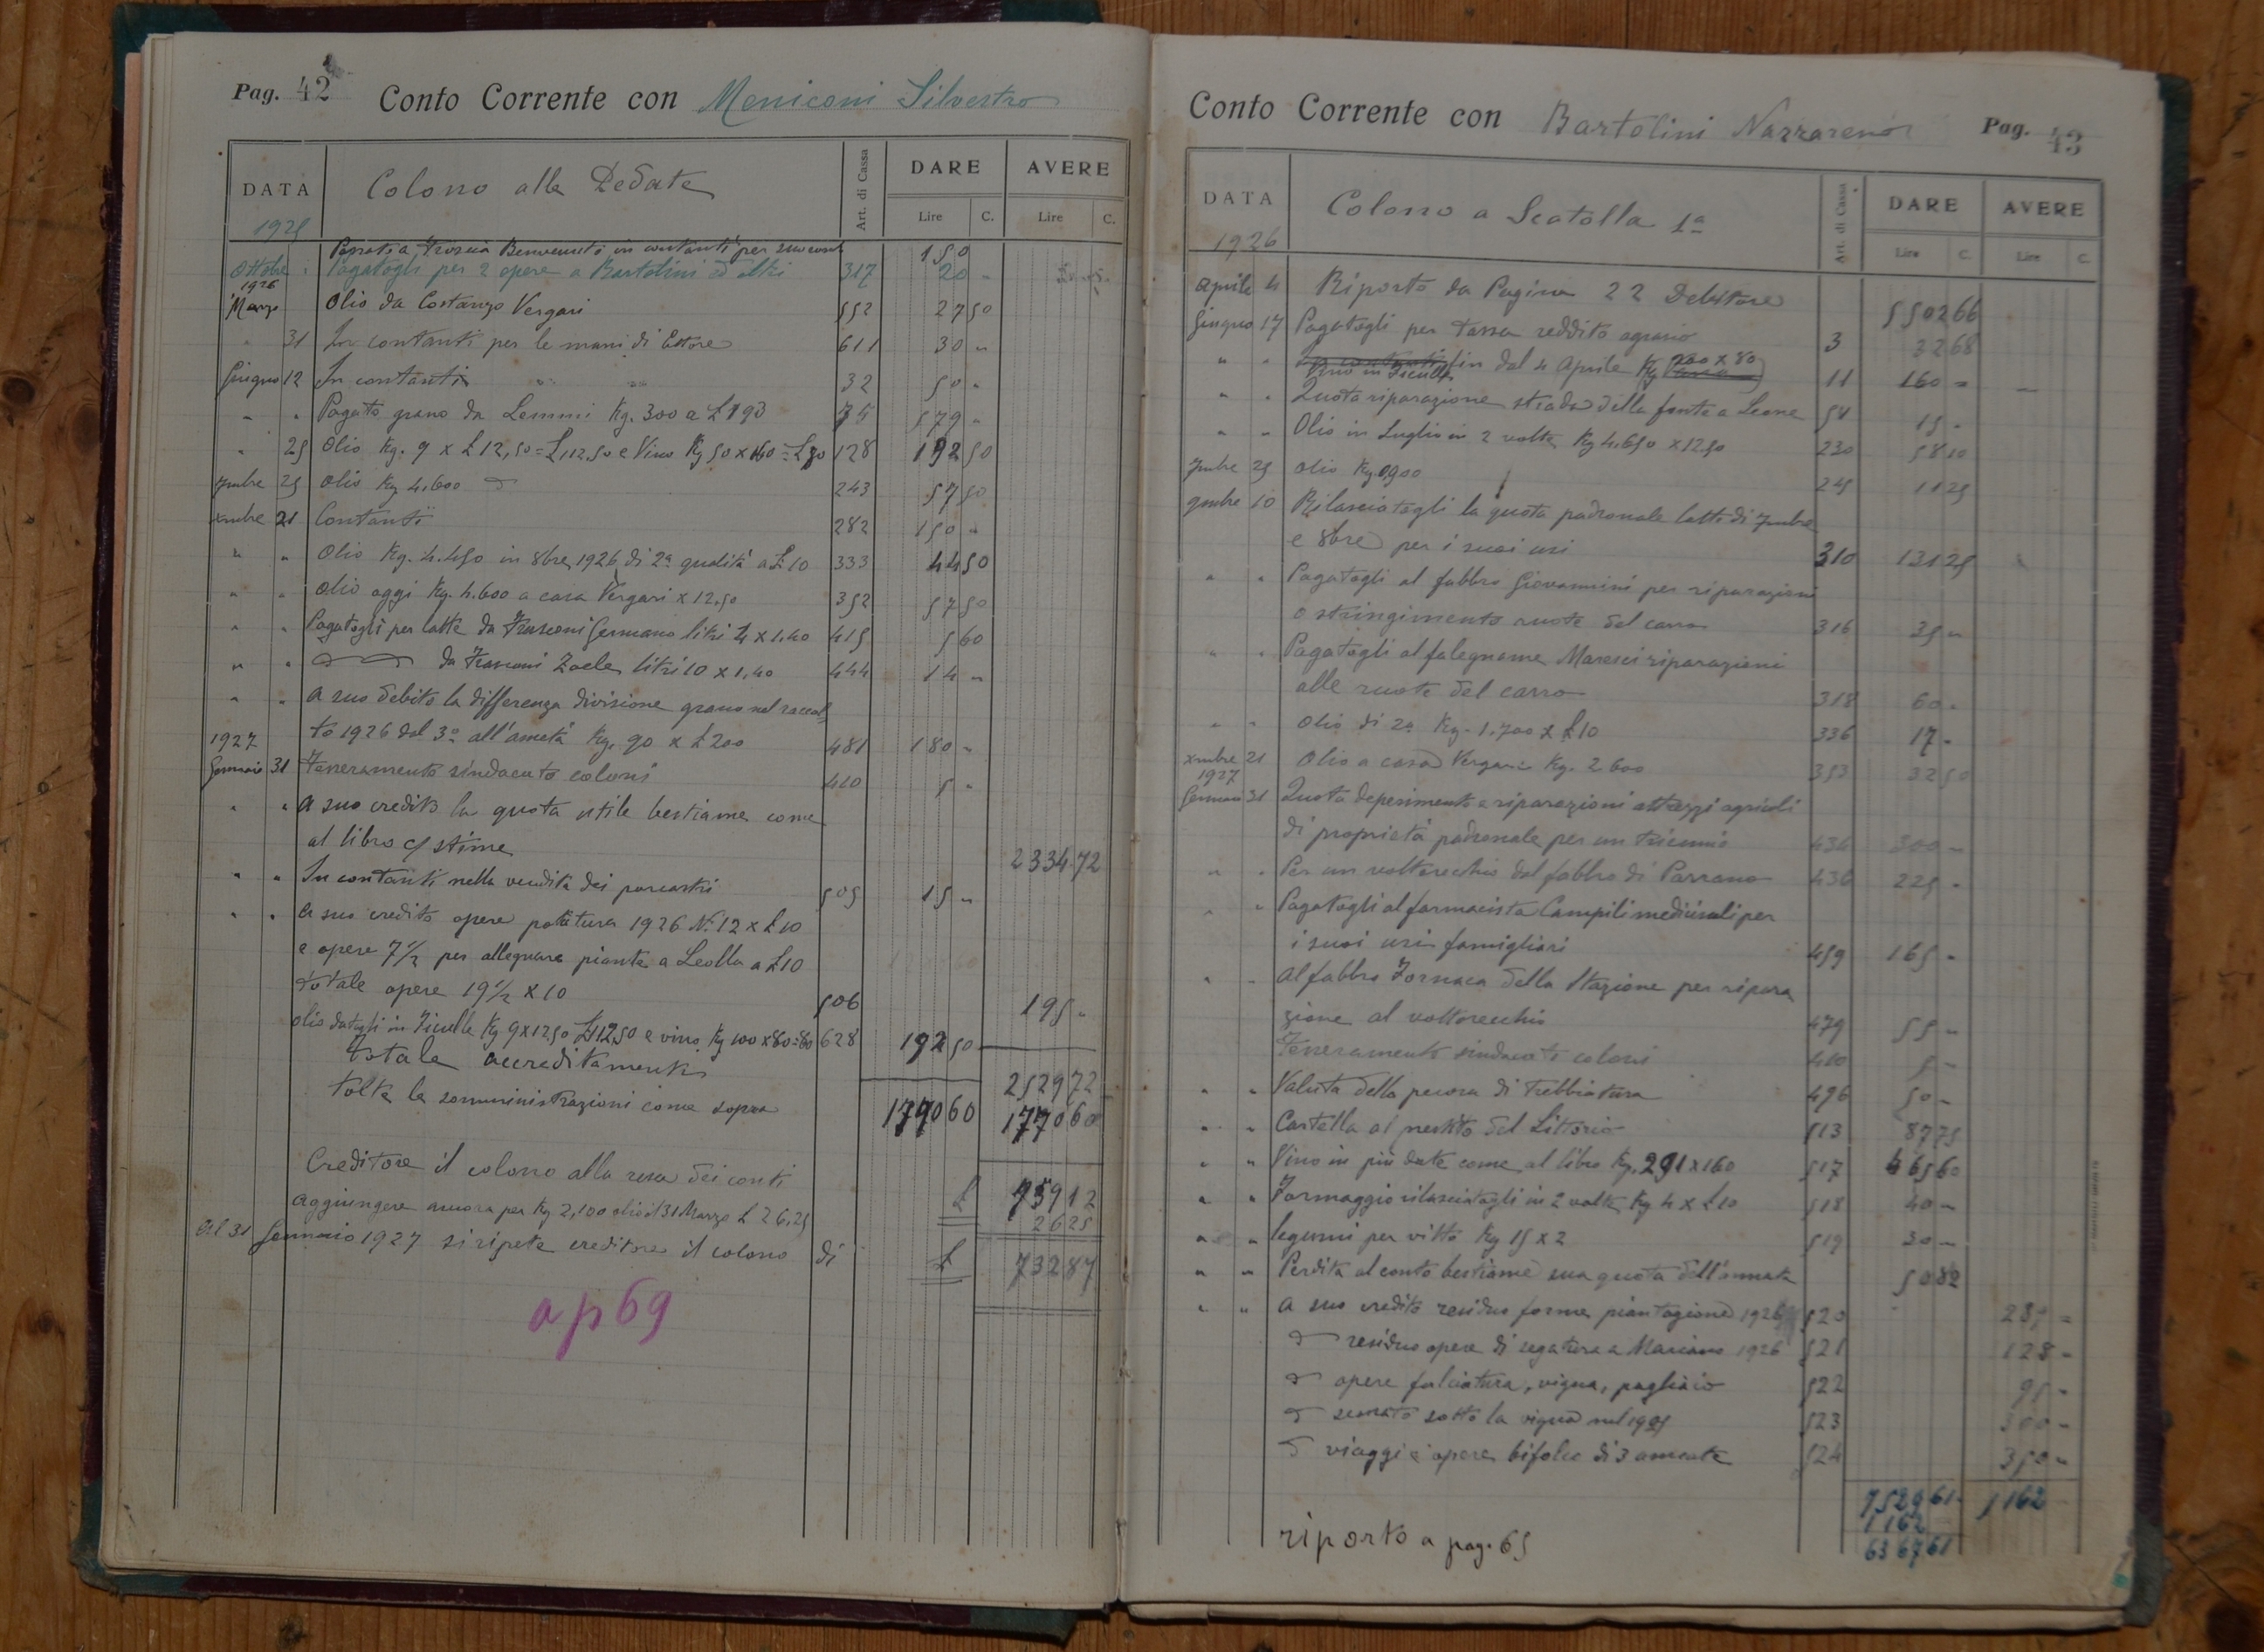 Pag. 42 Conto Corrente con Meniconi Silvestro
DATA Colono alle Dedate Art. di Cassa DARE AVERE
1925 Lire C. Lire C.
Pagato a Benvenuto in contanti per suo conto 150
Ottobre Pagatogli per 2 opere a Bartolini ed altri 317 20 "
1926
Marzo Olio da Costanzo Vergari 552 27 50
" 31 In contanti per le mani di Ettore 611 30 "
Giugno 12 In contanti " " 32 50 "
" " Pagato grano da Lemmi Kg. 300 a £ 193 75 579 "
" 25 Olio Kg. 9 x £ 12,50 = £ 112.50 e Vino Kg 50 x 160 = £ 80 128 192 50
7mbre 25 Olio Kg 4.600 243 57 50
xmbre 21 Contanti 282 150 "
" " Olio Kg. 4.450 in 8bre 1926 di 2a qualità a £ 10 333 44 50
" " Olio oggi Kg. 4.600 a casa Vergari x 12,50 352 57 50
" " Pagatogli per latte da Frasconi Germano litri 4 x 1,40 415 5 60
" " da Frasconi Zaele litri 10 x 1,40 444 14 "
" " A suo debito la differenza divisione grano nel raccol
1927 to 1926 dal 3o all'ametà Kg. 90 x £ 200 481 180 "
Gennaio 31 Tesseramento sindacato coloni 410 5 "
" " A suo credito la quota utile bestiame come
al libro c/ stime 2334 72
" " In contanti nella vendita dei porcastri 505 15 "
" " A suo credito opere potatura 1926 N. 12 x £ 10
e opere 7 1/2 per allegnare piante a Leolla a £ 10
totale opere 19 1/2 x 10 506 195 "
Olio datogli in Ficulle Kg 9 x 12,50 £ 112,50 e vino Kg 100 x 80 = 80 628 192 50
Totale accreditamenti 2529 72
Tolte le somministrazioni come sopra 1770 60 1770 60
Creditore il colono alla resa dei conti £ 759 12
Aggiungere ancora per Kg 2,100 olio il 31 Marzo £ 26,25 26 25
Al 31 Gennaio 1927 si ripete creditore il colono di £ 732 87
a p 69
Conto Corrente con Bartolini Nazzareno Pag. 43
DATA Colono a Scatolla 1a Art. di Cassa DARE AVERE
1926 Lire C. Lire C.
Aprile 4 Riporto da Pagina 22 Debitore 5502 66
Giugno 17 Pagatogli per tassa reddito agrario 3 32 68
" " Vino in Ficulle fin dal 4 Aprile Kg 200 x 80 11 160 "
" " Quota riparazione strada della fonte a Leone 54 15 "
" " Olio in Luglio in 2 volte Kg 4.650 x 12.50 230 58 10
7mbre 25 Olio Kg. 0900 245 11 25
9mbre 10 Rilasciatogli la quota padronale latte di 7mbre
e 8bre per i suoi usi 310 131 25
" " Pagatogli al fabbro Giovannini per riparazioni
o stringimento ruote del carro 316 35 "
" " Pagatogli al falegname Maresci riparazioni
alle ruote del carro 318 60 "
" " Olio di 2a Kg. 1.700 x £ 10 336 17 "
xmbre 21 Olio a casa Vergari Kg. 2 600 353 32 50
1927
Gennaio 31 Quota deperimento e riparazioni attrezzi agricoli
di proprietà padronale per un triennio 436 300 "
" " Per un voltorecchio dal fabbro di Parrano 436 225 "
" " Pagatogli al farmacista Campili medicinali per
i suoi usi famigliari 459 165 "
" " Al fabbro Fornaca della Stazione per ripara
zione al voltorecchio 479 55 "
Tesseramento sindacato coloni 410 5 "
" " Valuta della pecora di trebbiatura 496 50 "
" " Cartella al prestito del Littorio 513 87 75
" " Vino in più date come al libro Kg. 291 x 160 517 465 60
" " Formaggio rilasciatogli in 2 volte Kg 4 x £ 10 518 40 "
" " legumi per vitto Kg 15 x 2 519 30 "
" " Perdita al conto bestiame sua quota dell'annata 50 82
" " A suo credito residuo forme piantagione 1926 520 287 "
residuo opere di segatura a Mariano 1926 521 128 "
opere falciatura, vigna, pagliaio 522 95 "
scassato sotto la vigna nel 1925 523 300 "
viaggi e opere bifolco di 3 annate 524 350 "
7529 61 1162
1162
6367 61
riporto a pag. 65